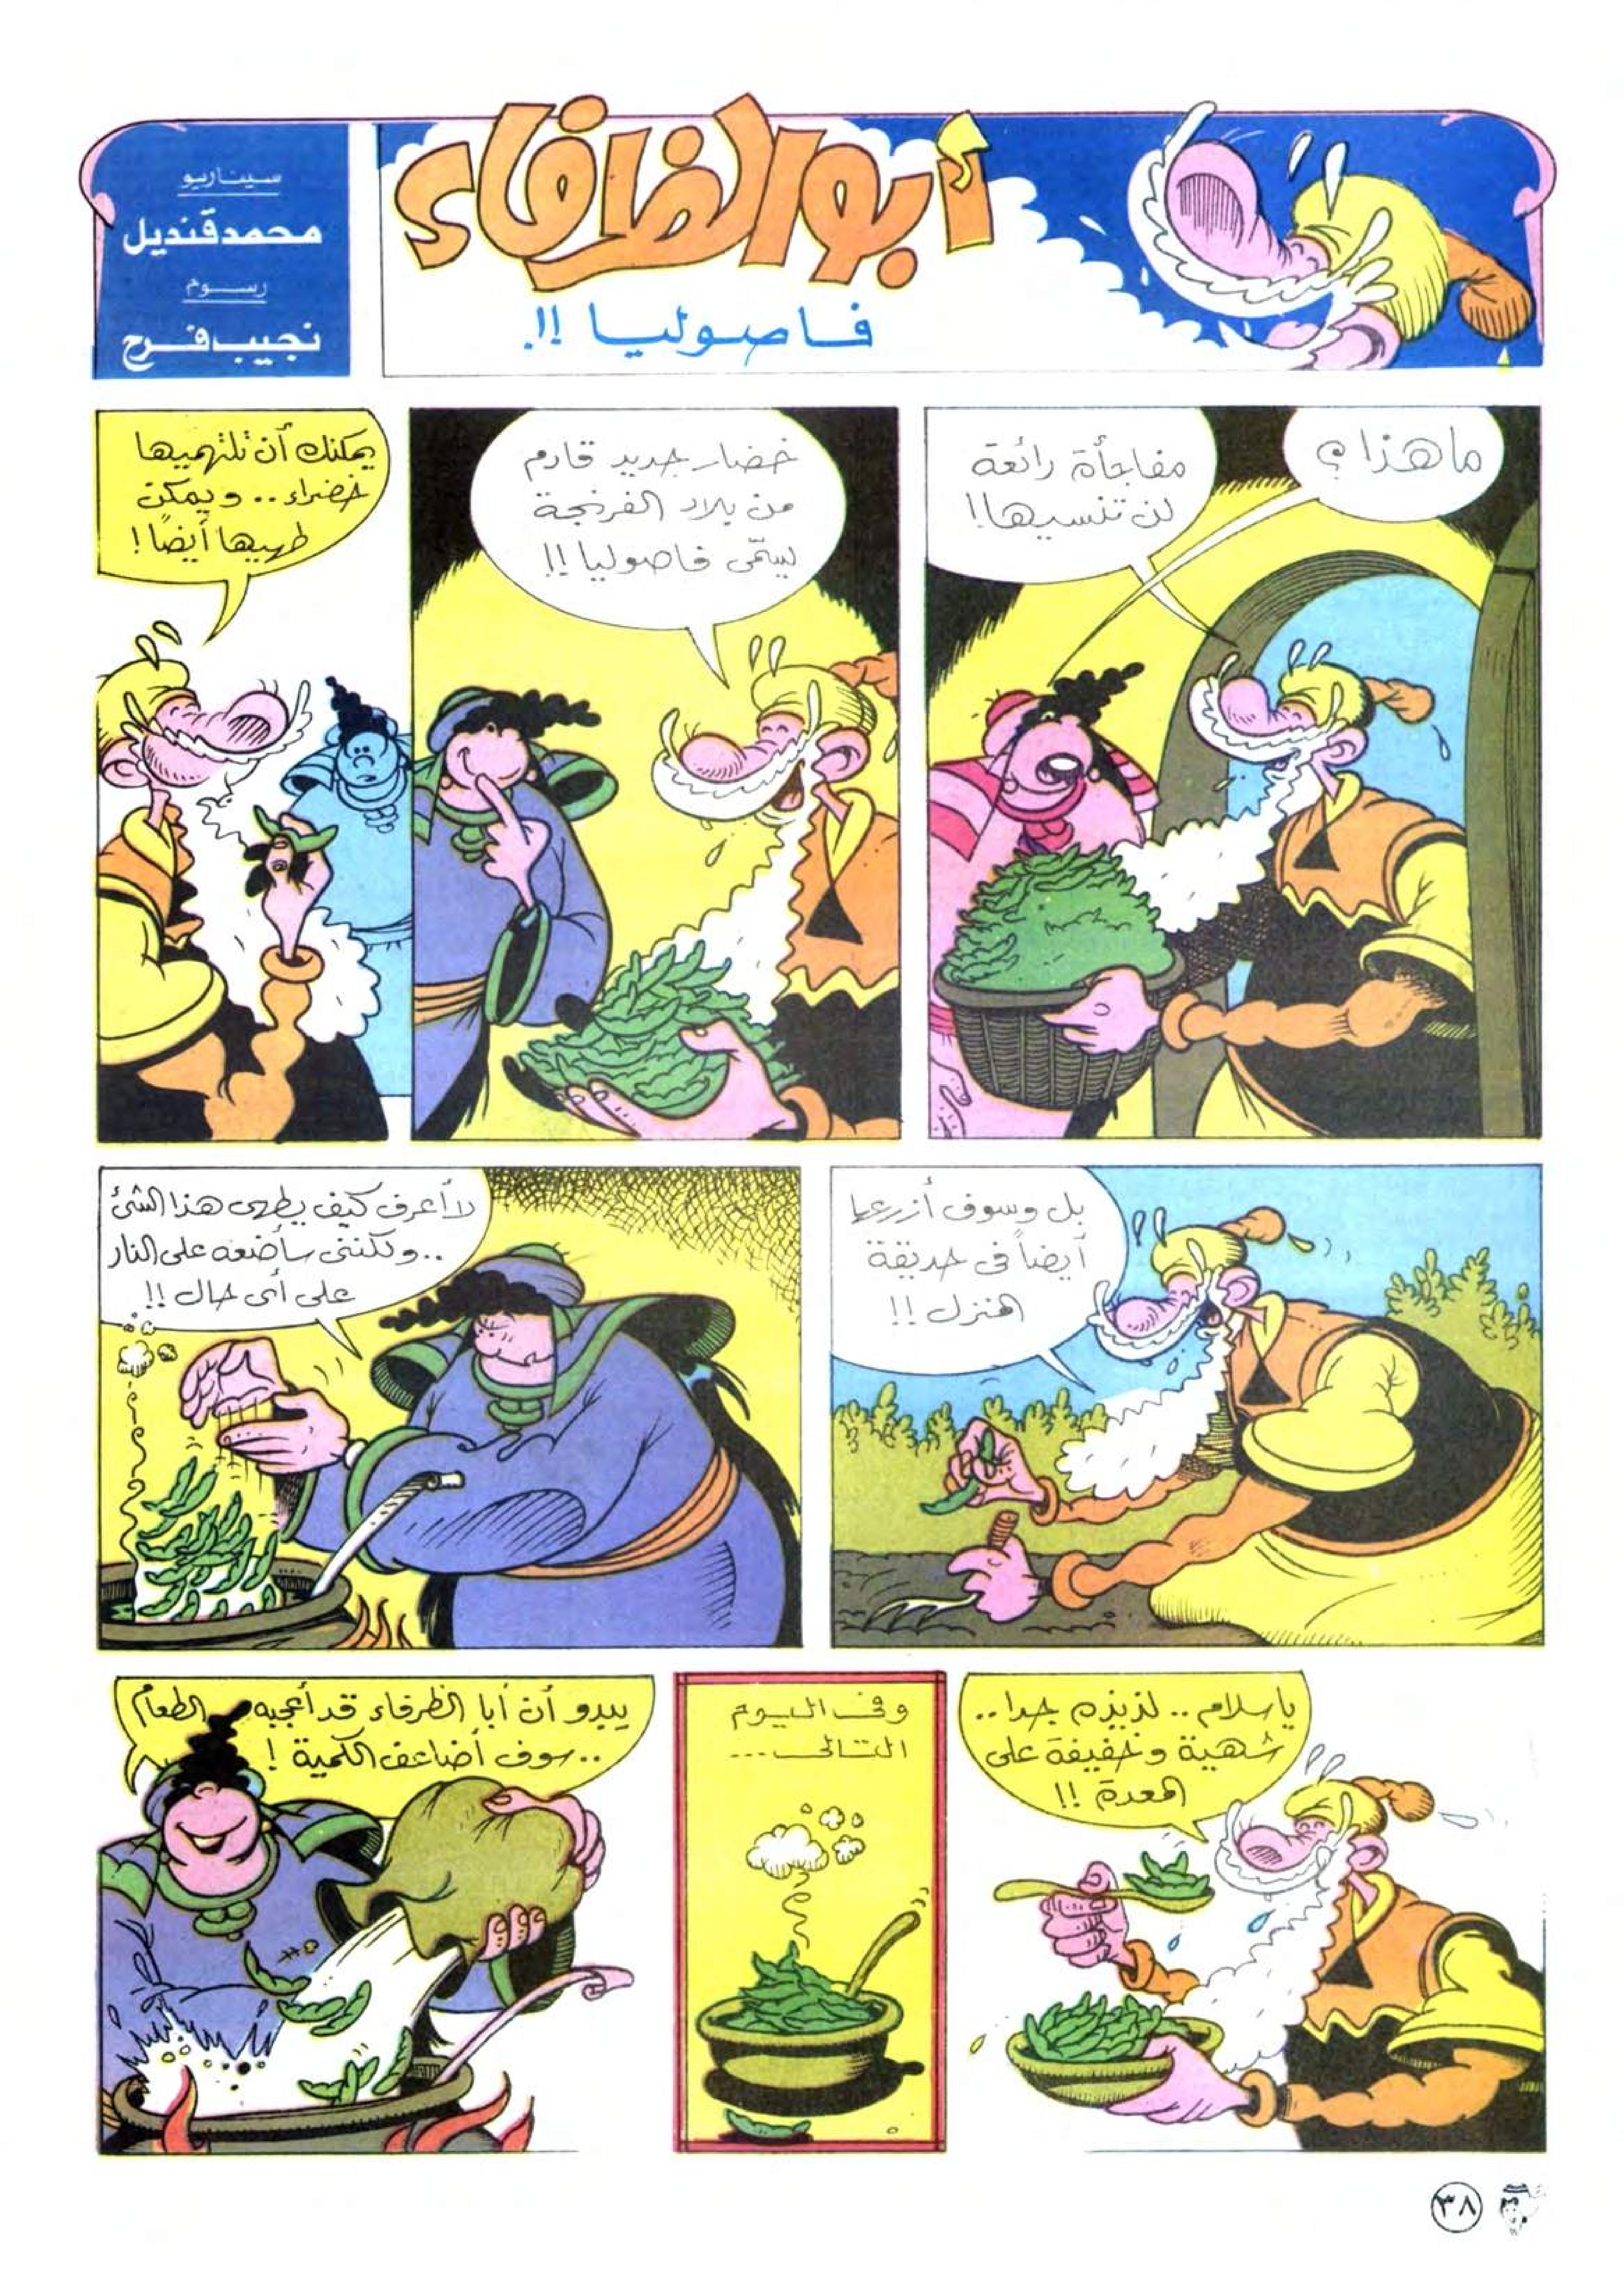 أبو الظرفاء
فاصوليا !!
سيناريو
محمد قنديل
رسوم
نجيب فرح
ما هذا ؟
مفاجأة رائعة
لن تنسيها !
خضار جديد قادم
من بلاد الفرنجة
يسمّى فاصوليا !!
يمكنك أن تلتهميها
خضراء .. ويمكن
طهيها أيضاً !
بل وسوف أزرعها
أيضاً فى حديقة
المنزل !!
لا أعرف كيف يطهى هذا الشئ
.. ولكننى سأضعه على النار
على أى حال !!
يا سلام .. لذيذه جدا ..
شهية وخفيفة على
المعدة !!
وفى اليوم
التالى ...
يبدو أن أبا الظرفاء قد أعجبه الطعام
.. سوف أضاعف الكمية !
٣٨